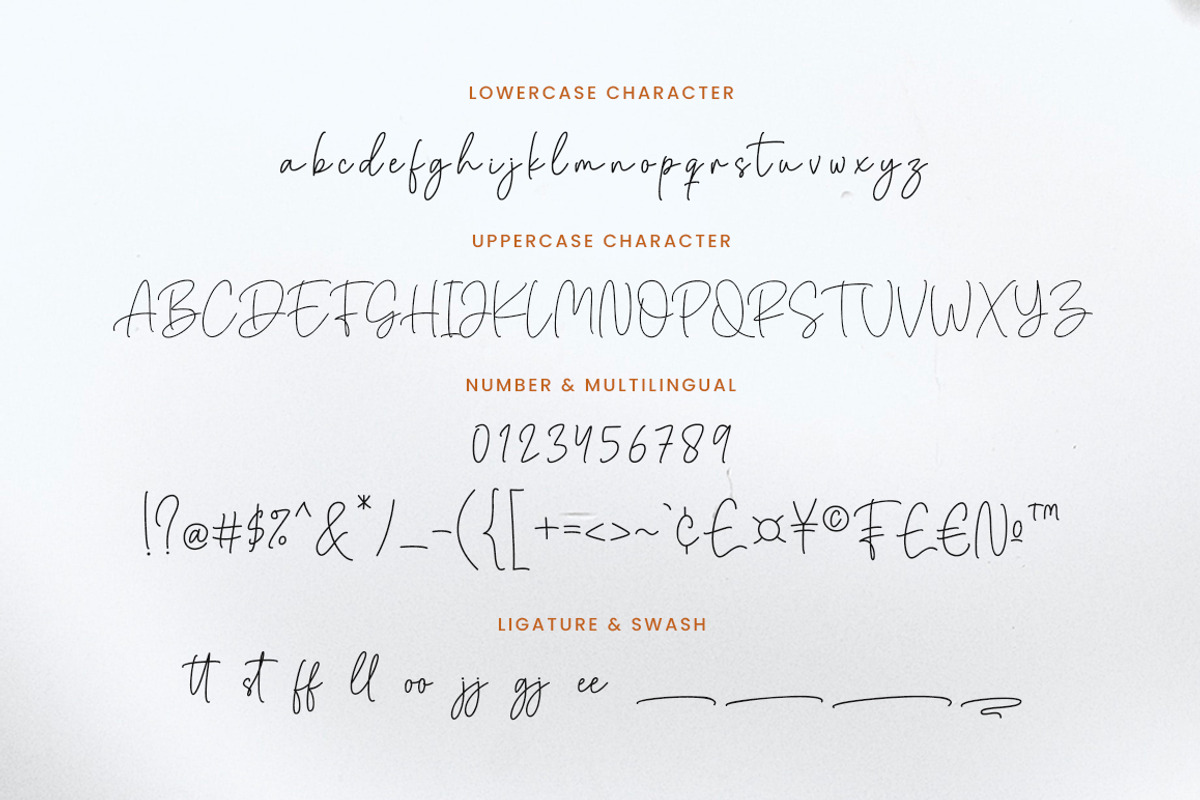 LOWERCASE CHARACTER
abcdefghijklmnopqrstuvwxyz
UPPERCASE CHARACTER
ABCDEFGHIJKLMNOPQRSTUVWXYZ
NUMBER & MULTILINGUAL
0123456789
!?@#$%^&*/_-({[+=<>~`¢£¤¥©₣₤€№™
LIGATURE & SWASH
tt st ff ll oo jj gj ee